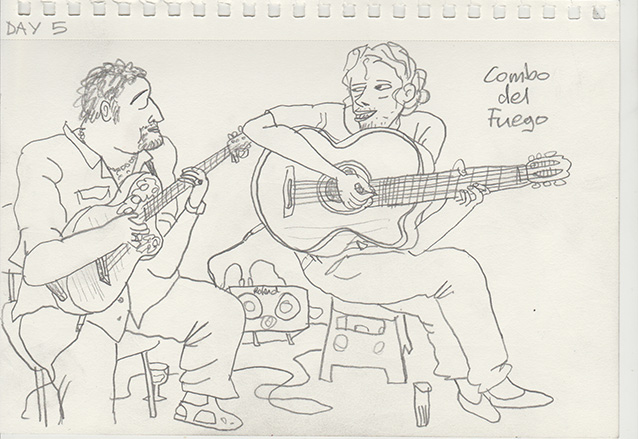 DAY 5
Combo
del
Fuego
Roland